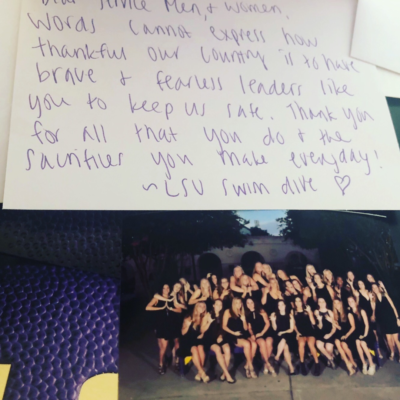 Dear Service Men, & Women,
Words cannot express how
thankful our country is to have
brave & fearless leaders like
you to keep us safe. Thank you
for all that you do & the
sacrifices you make everyday!
~LSU Swim dive ♡